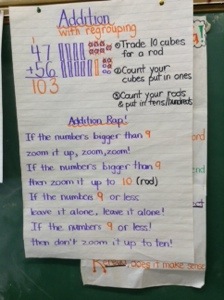 Addition
with regrouping
1
47
+56
103
① Trade 10 cubes
for a rod
② Count your
cubes put in ones
③ Count your rods
& put in tens/hundreds
Addition Rap!
If the numbers bigger than 9
zoom it up, zoom, zoom!
If the numbers bigger than 9
then zoom it up to 10 (rod)
If the numbers 9 or less
leave it alone, leave it alone!
If the numbers 9 or less!
then don't zoom it up to ten!
does it make sense